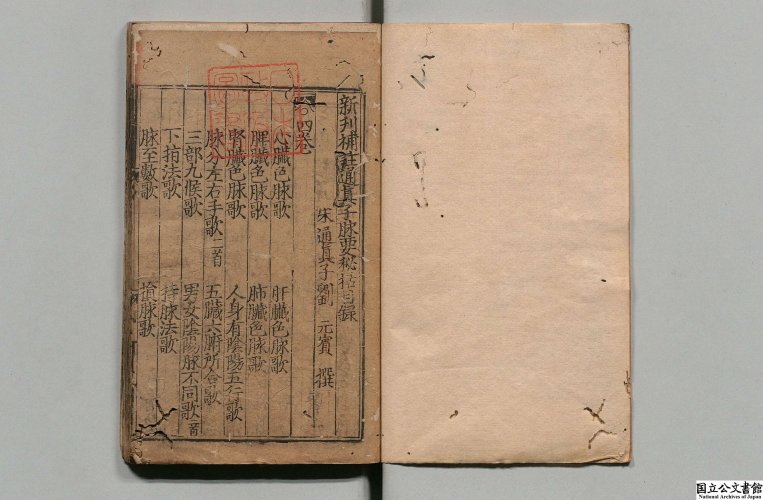 新刊補註通真子脉要秘括目録
宋通真子劉 元賓 撰
四卷
心臓色脉歌 肝臓色脉歌
脾臓色脉歌 肺臓色脉歌
腎臓色脉歌 人身有陰陽五行歌
脉分左右手歌二首 五臓六腑所合歌
三部九候歌 男女陰陽脉不同歌首
下指法歌 持脉法歌
脉至數歌 脉歌
国立公文書館
National Archives of Japan